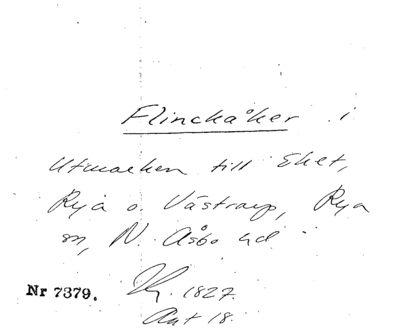 Flinckåker i
Utmarken till Eket,
Rya o. Västraup, Rya
sn, N. Åsbo hd
Nr 7379. 1827.
Akt 18.